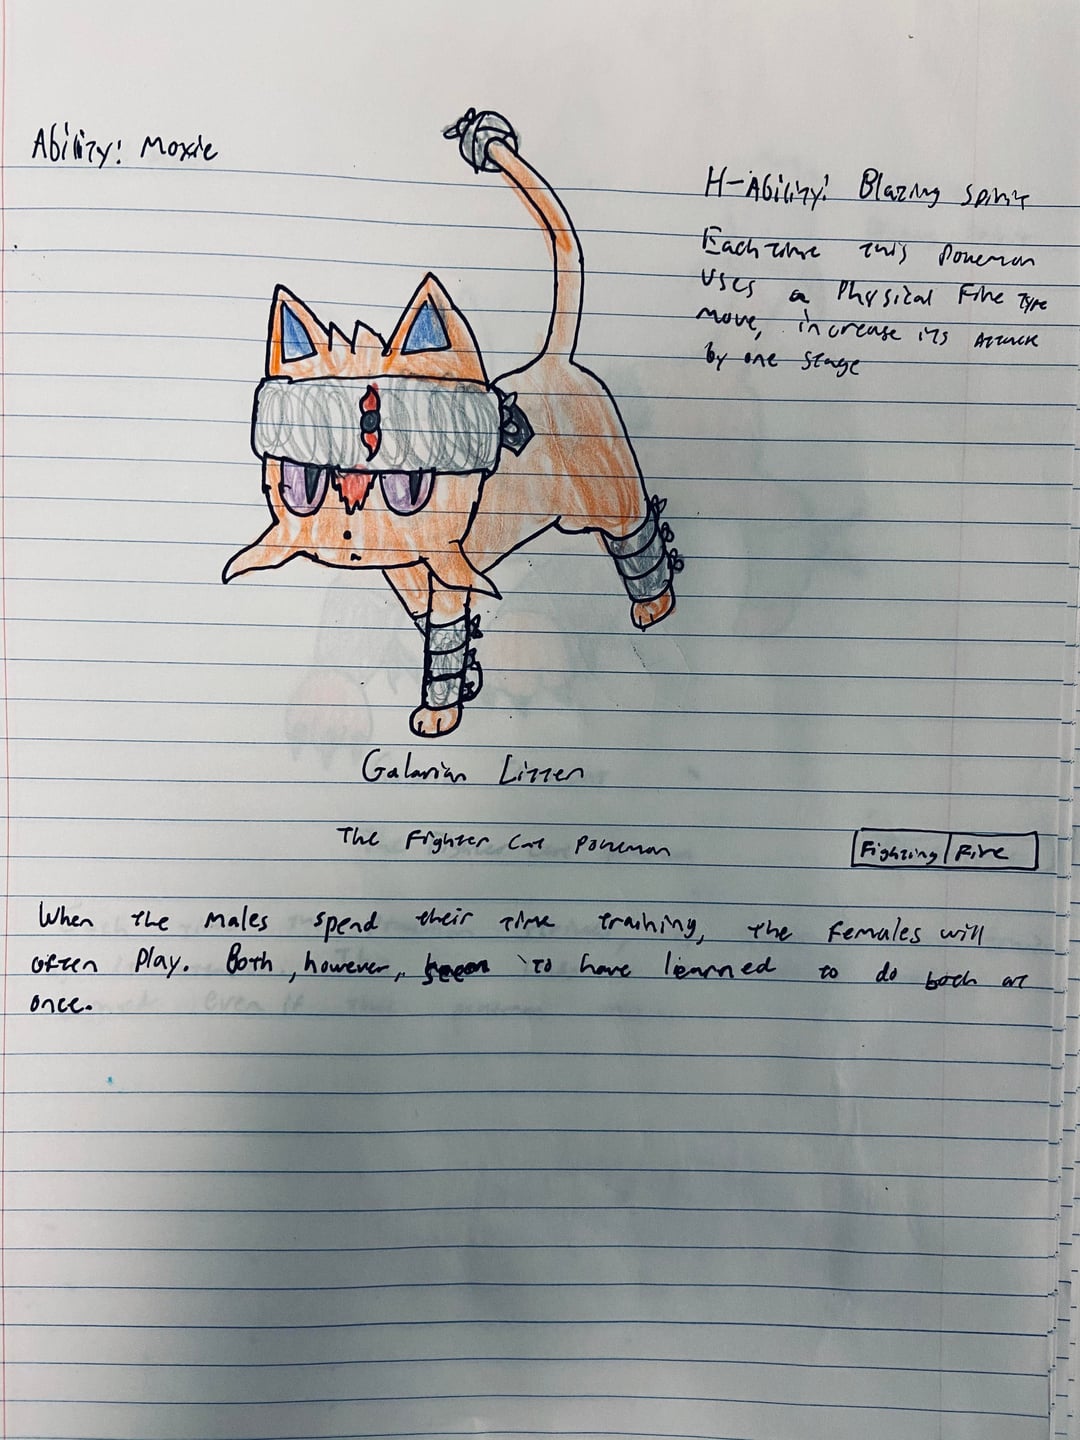 Ability: Moxie
H-Ability: Blazing Spirit
Each time this Pokemon
uses a Physical Fire Type
move, increase its Attack
by one stage
Galarian Litten
The Fighter Cat Pokemon
Fighting Fire
When the males spend their time training, the females will
often play. Both, however, seem to have learned to do both at
once.